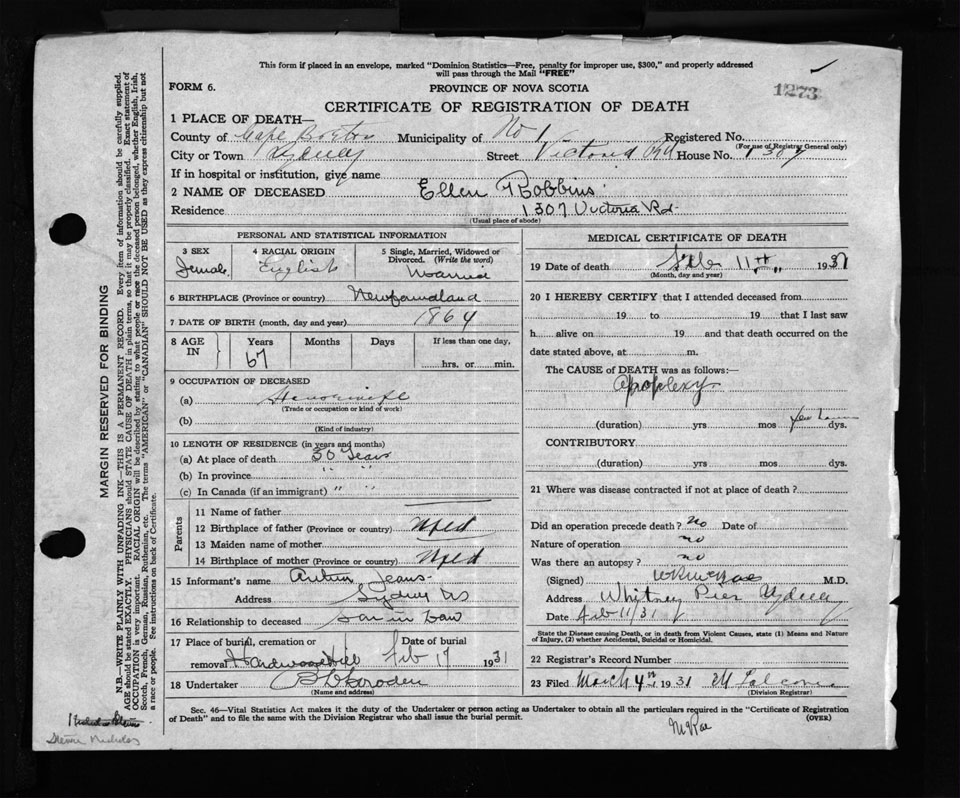 This form if placed in an envelope, marked "Dominion Statistics—Free, penalty for improper use, $300," and properly addressed
will pass through the Mail "FREE"
FORM 6.
PROVINCE OF NOVA SCOTIA
1273
CERTIFICATE OF REGISTRATION OF DEATH
1 PLACE OF DEATH—
County of Cape Breton Municipality of No 1 Registered No.
(For use of Registrar General only)
City or Town Sydney Street Victoria Rd House No. 1307
If in hospital or institution, give name
2 NAME OF DECEASED Ellen Robbins
Residence 1307 Victoria Rd
(Usual place of abode)
PERSONAL AND STATISTICAL INFORMATION
3 SEX Female
4 RACIAL ORIGIN English
5 Single, Married, Widowed or Divorced. (Write the word)
6 BIRTHPLACE (Province or country) Newfoundland
7 DATE OF BIRTH (month, day and year) 1864
8 AGE IN Years Months Days If less than one day,
67 hrs. or min.
9 OCCUPATION OF DECEASED
(a) Housewife
(Trade or occupation or kind of work)
(b)
(Kind of industry)
10 LENGTH OF RESIDENCE (in years and months)
(a) At place of death 30 Years
(b) In province " "
(c) In Canada (if an immigrant) " "
Parents
11 Name of father
12 Birthplace of father (Province or country) Nfld
13 Maiden name of mother
14 Birthplace of mother (Province or country) Nfld
15 Informant's name Jeans
Address Sydney NS
16 Relationship to deceased Son in Law
17 Place of burial, cremation or removal Hardwood Hill Date of burial Feb 17 1931
18 Undertaker
(Name and address)
MEDICAL CERTIFICATE OF DEATH
19 Date of death Feb 11th 1931
(Month, day and year)
20 I HEREBY CERTIFY that I attended deceased from
19 to 19 that I last saw
h alive on 19 and that death occurred on the
date stated above, at m.
The CAUSE of DEATH was as follows:—
Apoplexy
(duration) yrs mos few dys.
CONTRIBUTORY
(duration) yrs mos dys.
21 Where was disease contracted if not at place of death?
Did an operation precede death? no Date of
Nature of operation no
Was there an autopsy? no
(Signed) M.D.
Address Whitney Pier Sydney
Date Feb 11/31
State the Disease causing Death, or in death from Violent Causes, state (1) Means and Nature
of Injury, (2) whether Accidental, Suicidal or Homicidal.
22 Registrar's Record Number
23 Filed March 4th 1931
(Division Registrar)
Sec. 46—Vital Statistics Act makes it the duty of the Undertaker or person acting as Undertaker to obtain all the particulars required in the "Certificate of Registration
of Death" and to file the same with the Division Registrar who shall issue the burial permit.
(OVER)
McRae
MARGIN RESERVED FOR BINDING
N.B.—WRITE PLAINLY WITH UNFADING INK—THIS IS A PERMANENT RECORD. Every item of information should be carefully supplied.
AGE should be stated EXACTLY. PHYSICIANS should STATE CAUSE OF DEATH in plain terms, so that it may be properly classified. Exact statement of
OCCUPATION is very important. RACIAL ORIGIN will be described by stating to what people or race the deceased person belonged, whether English, Irish,
Scotch, French, German, Russian, Ruthenian, etc. The terms "AMERICAN" or "CANADIAN" SHOULD NOT BE USED as they express citizenship but not
a race or people. See instructions on back of Certificate.
Nicholas